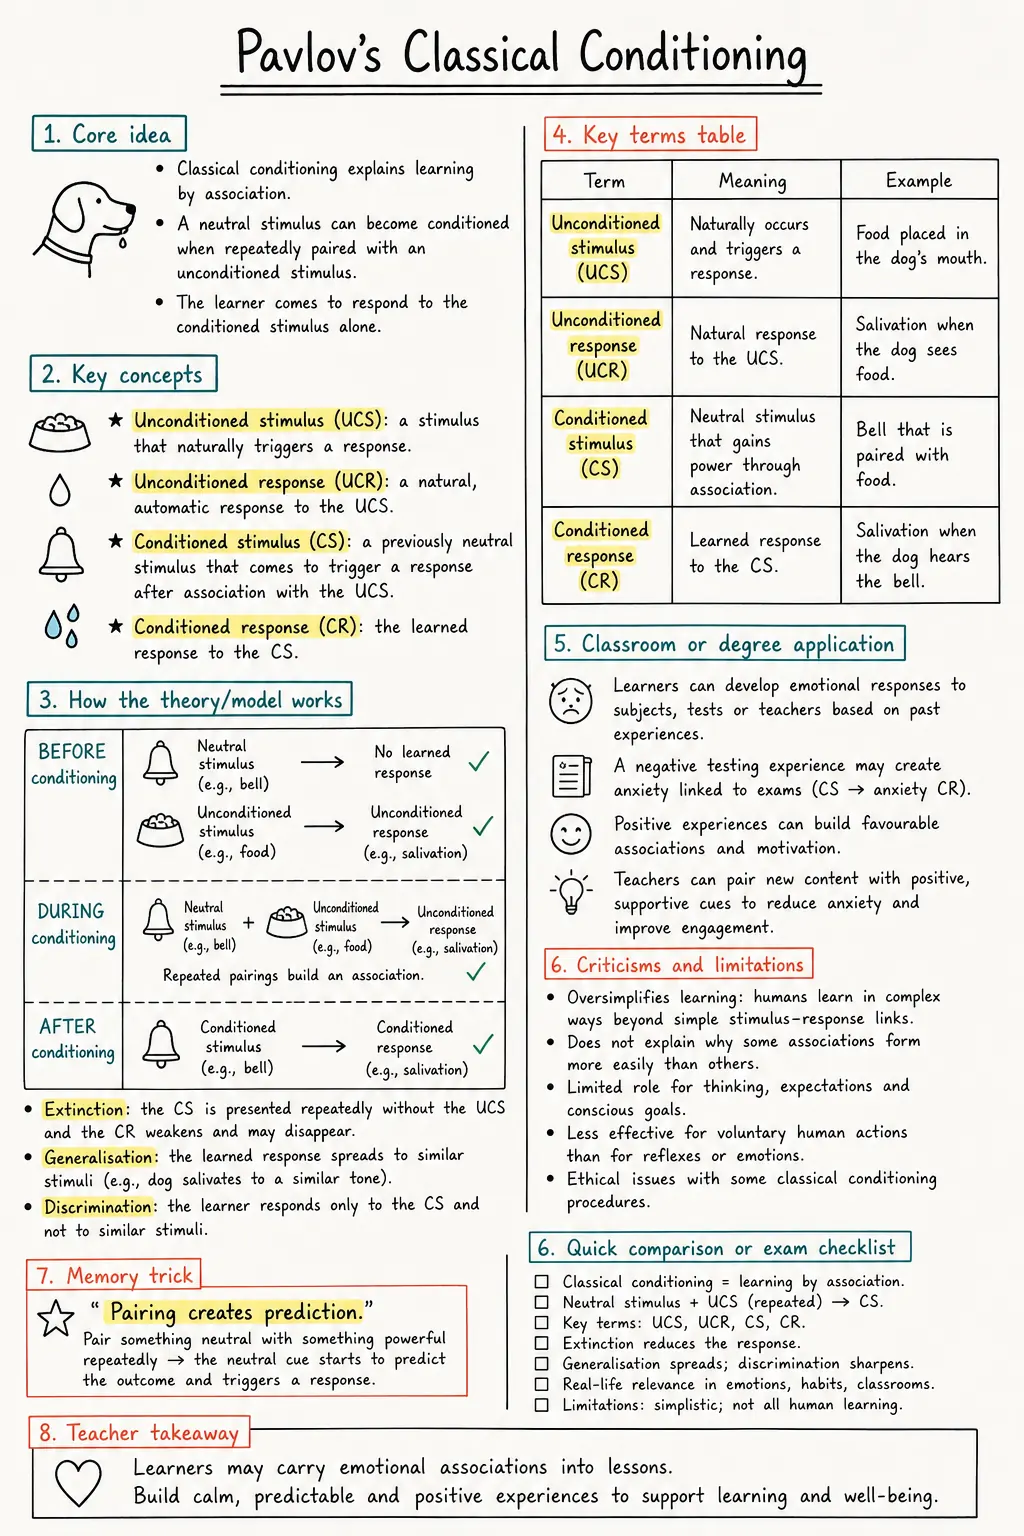 Pavlov's Classical Conditioning
1. Core idea
• Classical conditioning explains learning
by association.
• A neutral stimulus can become conditioned
when repeatedly paired with an
unconditioned stimulus.
• The learner comes to respond to the
conditioned stimulus alone.
2. Key concepts
★ Unconditioned stimulus (UCS): a stimulus
that naturally triggers a response.
★ Unconditioned response (UCR): a natural,
automatic response to the UCS.
★ Conditioned stimulus (CS): a previously neutral
stimulus that comes to trigger a response
after association with the UCS.
★ Conditioned response (CR): the learned
response to the CS.
3. How the theory/model works
BEFORE
conditioning
Neutral
stimulus
(e.g., bell)
→
No learned
response
✓
Unconditioned
stimulus
(e.g., food)
→
Unconditioned
response
(e.g., salivation)
✓
DURING
conditioning
Neutral
stimulus
(e.g., bell)
+
Unconditioned
stimulus
(e.g., food)
→
Unconditioned
response
(e.g., salivation)
Repeated pairings build an association. ✓
AFTER
conditioning
Conditioned
stimulus
(e.g., bell)
→
Conditioned
response
(e.g., salivation)
✓
• Extinction: the CS is presented repeatedly without the UCS
and the CR weakens and may disappear.
• Generalisation: the learned response spreads to similar
stimuli (e.g., dog salivates to a similar tone).
• Discrimination: the learner responds only to the CS and
not to similar stimuli.
4. Key terms table
Term
Meaning
Example
Unconditioned
stimulus
(UCS)
Naturally occurs
and triggers a
response.
Food placed in
the dog's mouth.
Unconditioned
response
(UCR)
Natural response
to the UCS.
Salivation when
the dog sees
food.
Conditioned
stimulus
(CS)
Neutral stimulus
that gains
power through
association.
Bell that is
paired with
food.
Conditioned
response
(CR)
Learned response
to the CS.
Salivation when
the dog hears
the bell.
5. Classroom or degree application
Learners can develop emotional responses to
subjects, tests or teachers based on past
experiences.
A negative testing experience may create
anxiety linked to exams (CS → anxiety CR).
Positive experiences can build favourable
associations and motivation.
Teachers can pair new content with positive,
supportive cues to reduce anxiety and
improve engagement.
6. Criticisms and limitations
• Oversimplifies learning: humans learn in complex
ways beyond simple stimulus-response links.
• Does not explain why some associations form
more easily than others.
• Limited role for thinking, expectations and
conscious goals.
• Less effective for voluntary human actions
than for reflexes or emotions.
• Ethical issues with some classical conditioning
procedures.
7. Memory trick
“Pairing creates prediction.”
Pair something neutral with something powerful
repeatedly → the neutral cue starts to predict
the outcome and triggers a response.
6. Quick comparison or exam checklist
☐ Classical conditioning = learning by association.
☐ Neutral stimulus + UCS (repeated) → CS.
☐ Key terms: UCS, UCR, CS, CR.
☐ Extinction reduces the response.
☐ Generalisation spreads; discrimination sharpens.
☐ Real-life relevance in emotions, habits, classrooms.
☐ Limitations: simplistic; not all human learning.
8. Teacher takeaway
Learners may carry emotional associations into lessons.
Build calm, predictable and positive experiences to support learning and well-being.